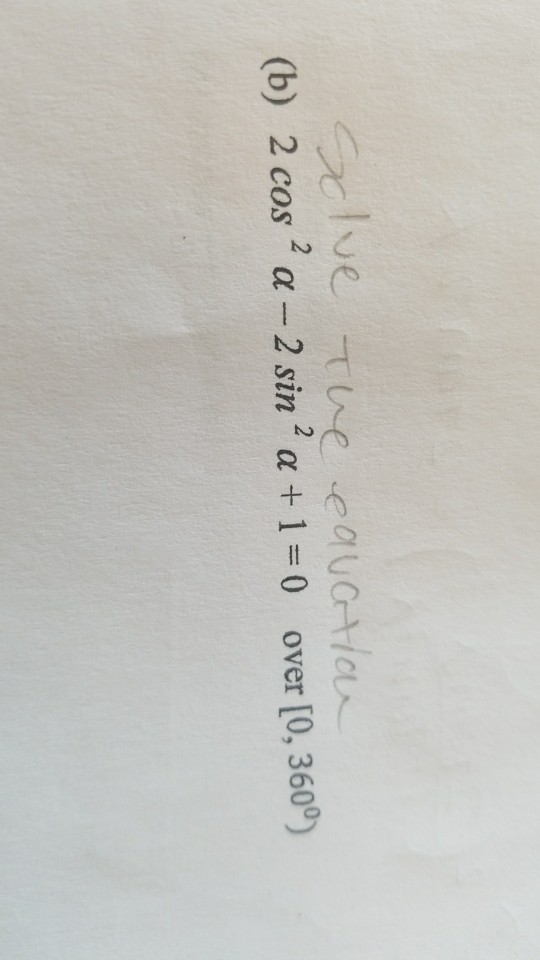 Solve the equation
(b) 2 cos ² α − 2 sin ² α + 1 = 0 over [0, 360⁰)